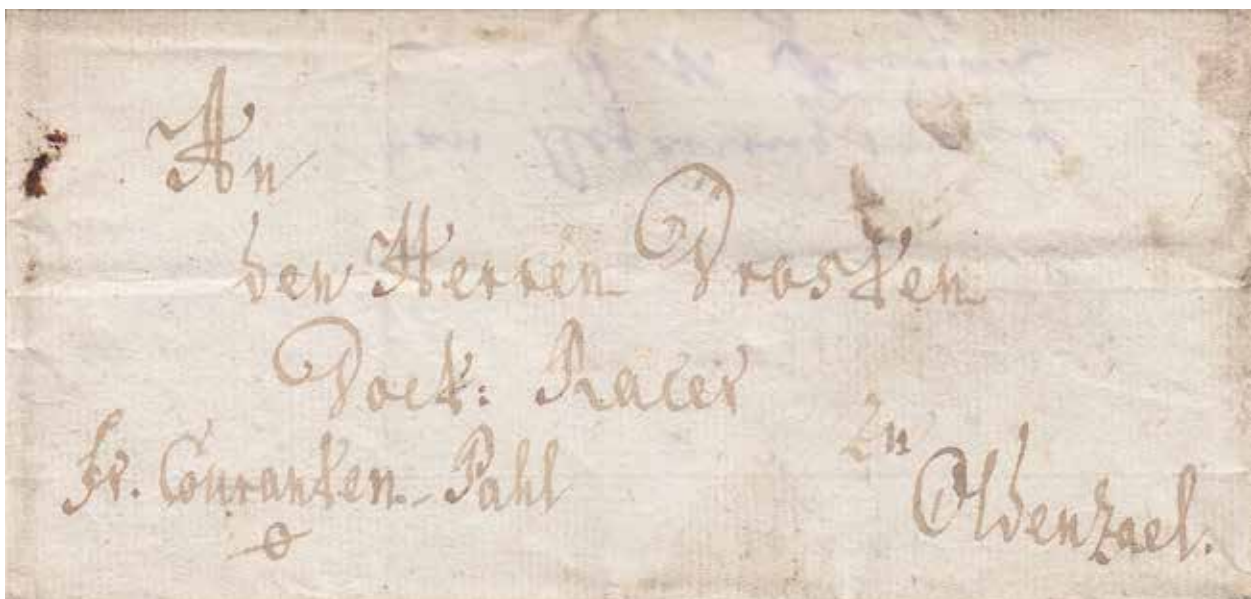 An
den Herren Drosten
Doct: Racer
Zu
fr. Couranten-Pahl
Oldenzael.